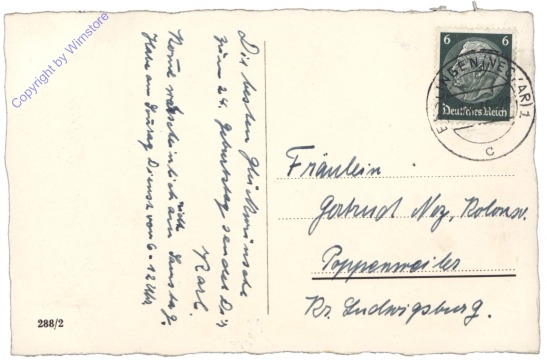 Copyright by Wimstore
Die besten Glückwünsche
zum 24. Geburtstag sendet Dir
Karl.
Komme wahrscheinlich nicht am Samstag.
Habe am Dienst von 6-12 Uhr
6 6
Deutsches Reich
(NECKAR) 1
c
Fräulein
Gertrud
Poppenweiler
Kr. Ludwigsburg.
288/2